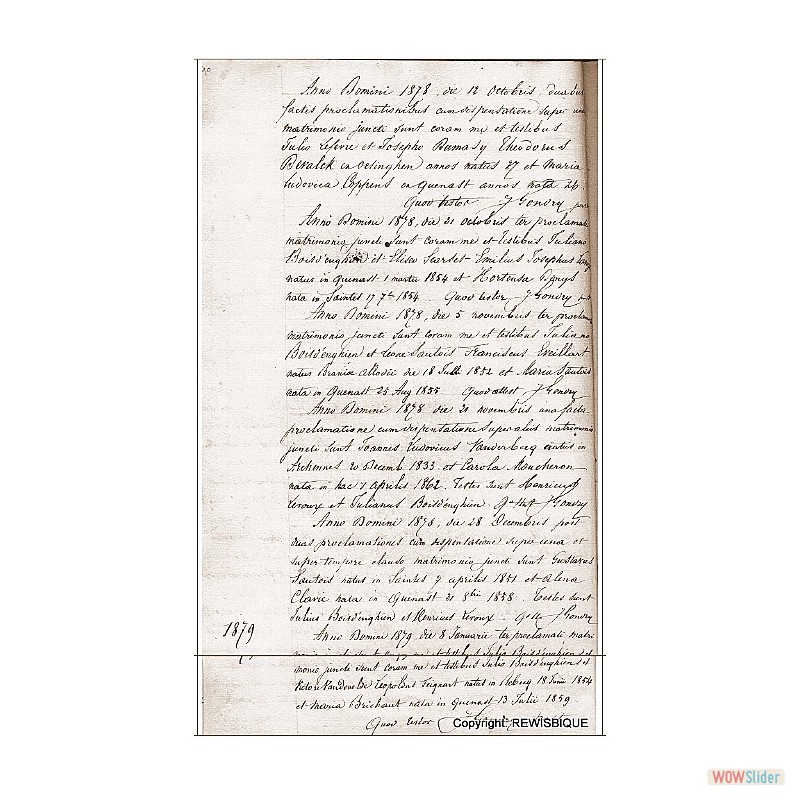 Anno Domini 1878, die 12 Octobris, duabus
factis proclamationibus cum dispensatione super una
matrimonio juncti sunt coram me et testibus
Julio Lefevre et Josepho Dumasy Theodorus
ex Oetinghen annos natus 27 et Maria
Ludovica Coppens ex Quenast annos nata 26
Quod testor J Gondry
Anno Domini 1878, die 21 octobris ter proclamati
matrimonio juncti sunt coram me et testibus Juliano
Boisd'enghien et Elisa Emilius Josephus
natus in Quenast 1 1854 et Hortensa
nata in Saintes 17 7bris 1854. Quod testor J Gondry
Anno Domini 1878, die 5 novembris ter proclam
matrimonio juncti sunt coram me et testibus Juliano
Boisd'enghien et Leone Sautois Franciscus
natus Braniæ Allodii die 18 1852 et Maria Sautois
nata in Quenast 25 Aug 1855 J Gondry
Anno Domini 1878 die 21 novembris una facta
proclamatione cum dispensatione super aliis matrimonio
juncti sunt Joannes Ludovicus natus in
Archennes 20 Decemb 1833 et Carola
nata in hac 7 aprilis 1862. Testes sunt Henricus
Leroux et Julianus Boisd'enghien. J Gondry
Anno Domini 1878, die 28 Decembris post
duas proclamationes cum dispensatione super una et
super tempore clauso matrimonio juncti sunt Gustavus
Sautois natus in Saintes 7 aprilis 1851 et Alena
Clavie nata in Quenast 21 8bris 1858. Testes sunt
Julius Boisd'enghien et Henricus Leroux. J Gondry
1879
Anno Domini 1879 die 8 Januarii ter proclamati matri
monio juncti sunt coram me et testibus Julio Boisd'enghien et
Leopoldus natus in 18 Junii 1854
et Maria Brichaut nata in Quenast 13 Julii 1859
Quod testor
Copyright: REWISBIQUE
WOWSlider